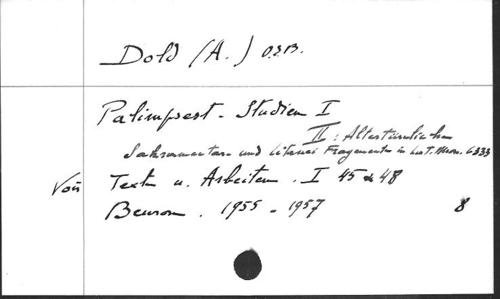 Dold (A.) O.S.B.
Palimpsest-Studien I
II: Altertümliche
Sakramentar und Litanei Fragmente in Lat. Mon. 6333
Voir Texte u. Arbeiten. I 45 & 48
Beuron. 1955-1957 8